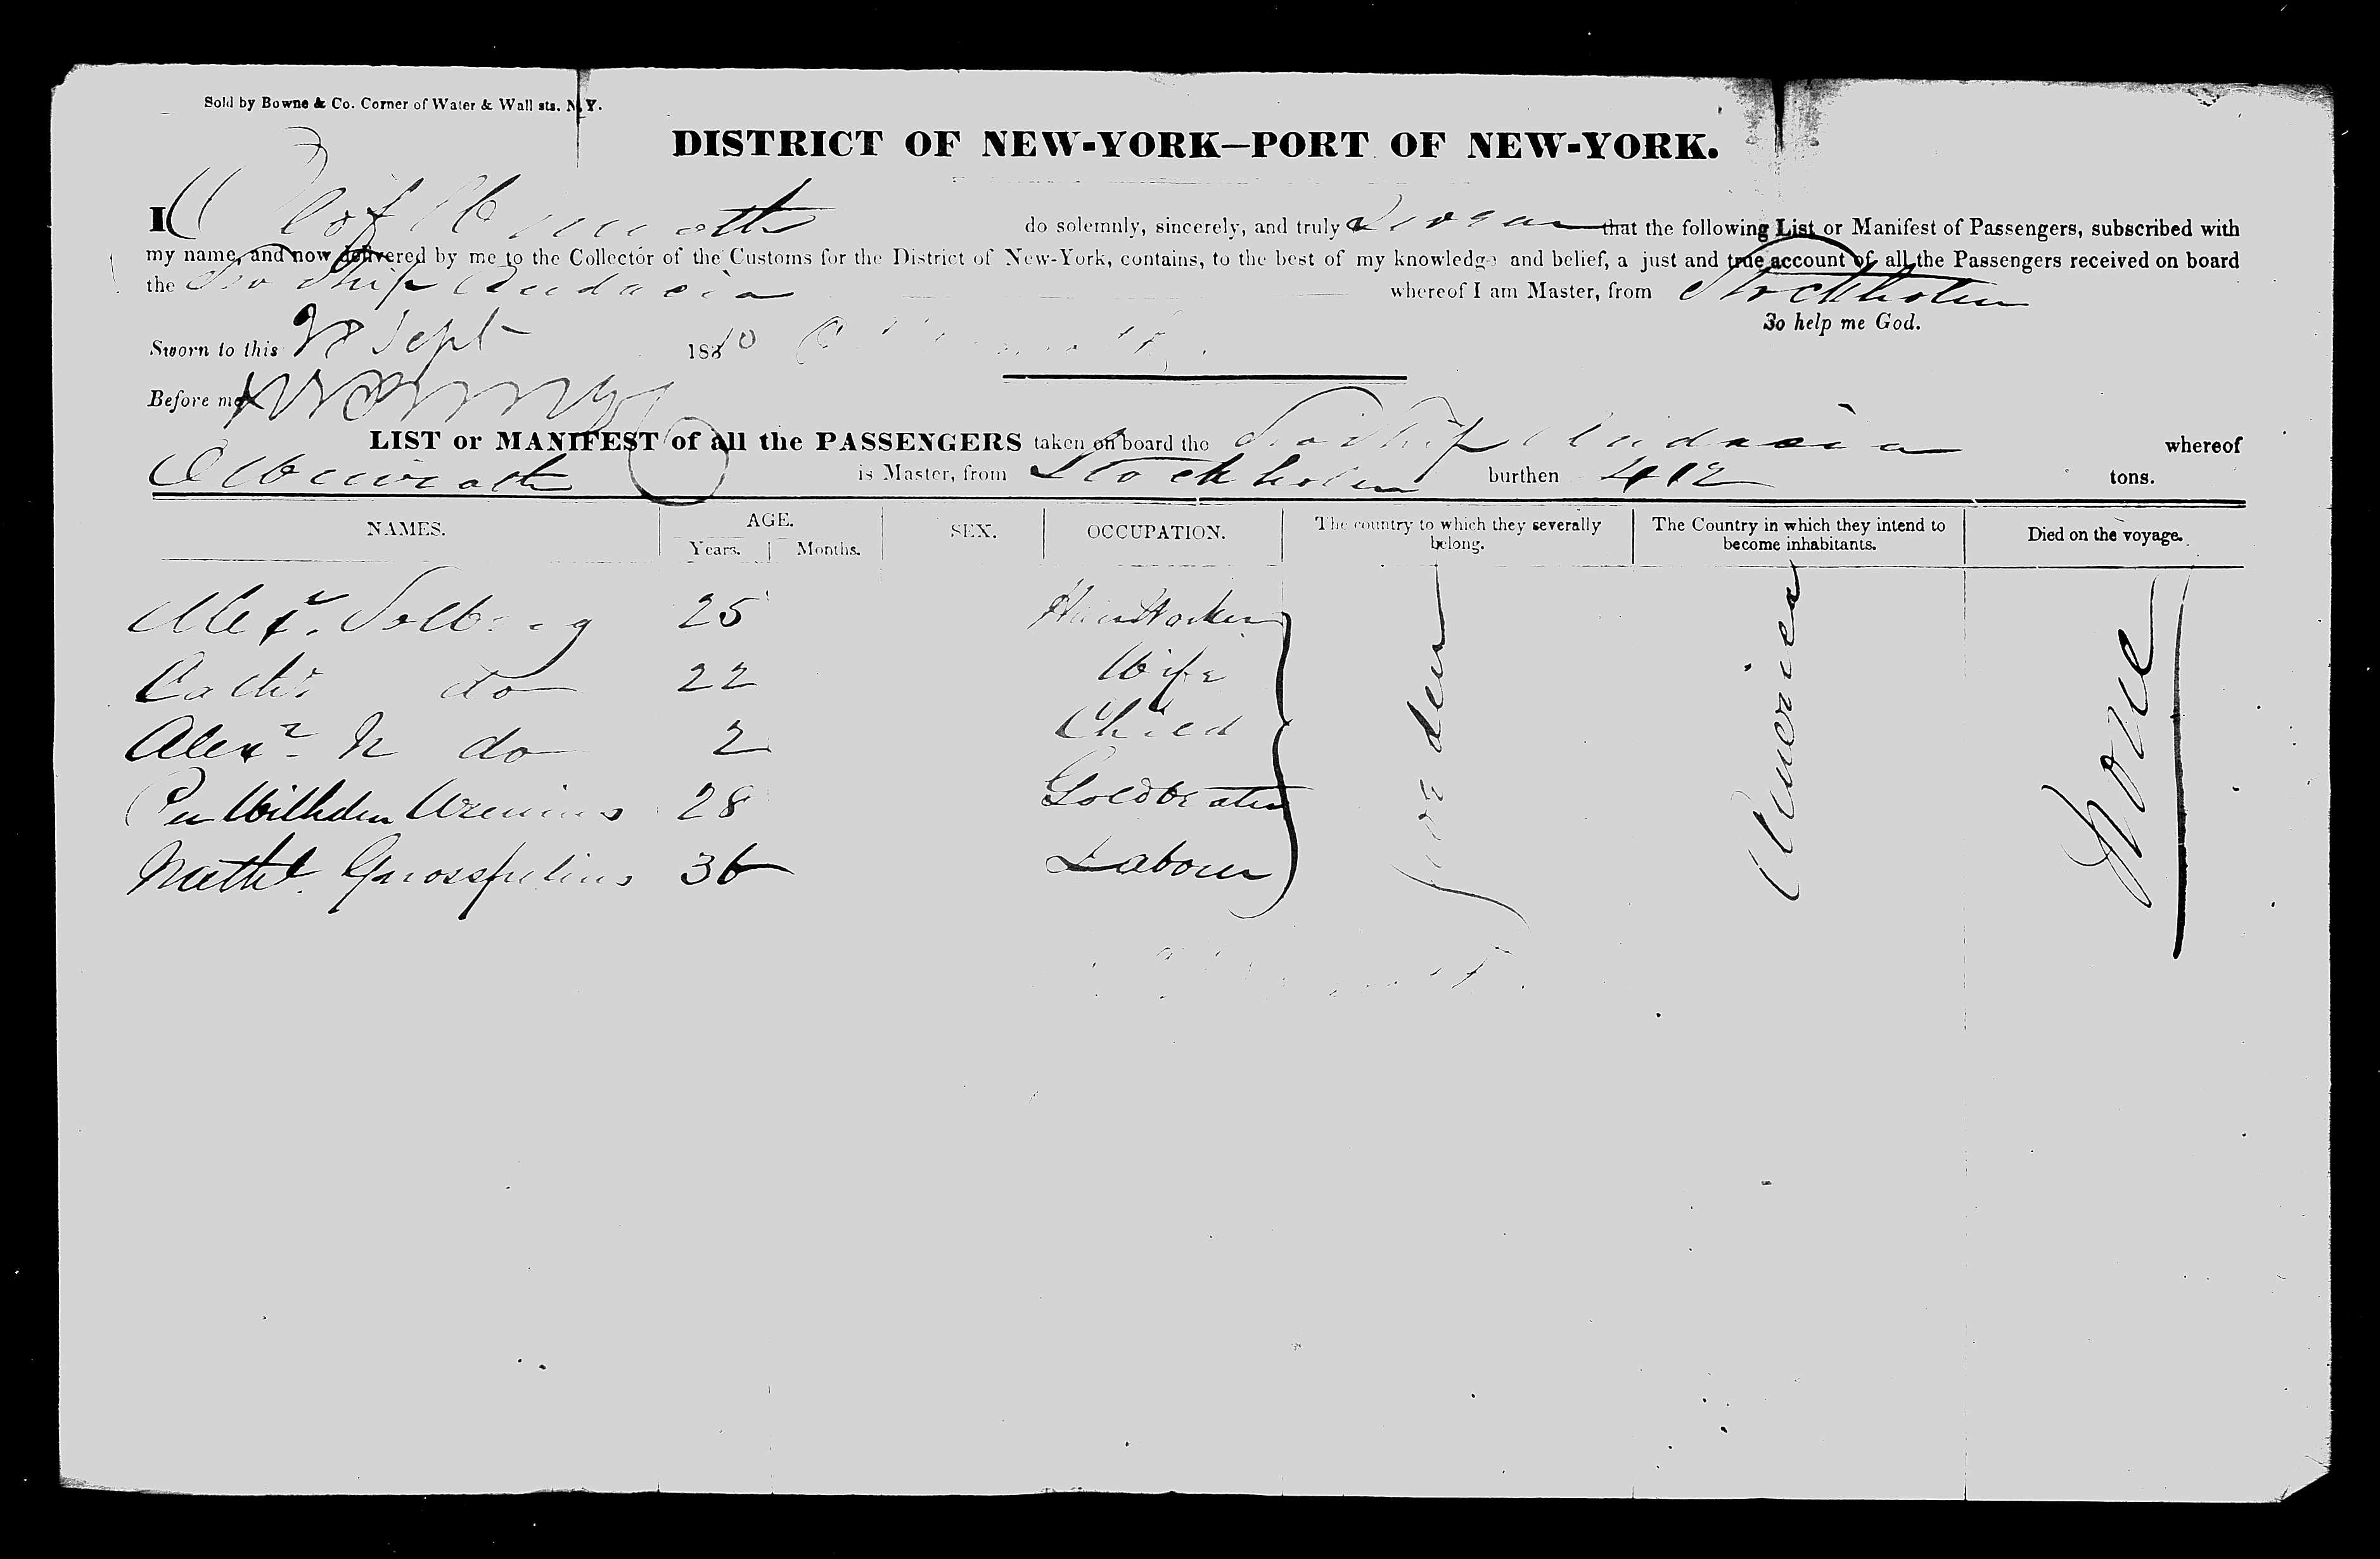 Sold by Bowne & Co. Corner of Water & Wall sts. N.Y.
DISTRICT OF NEW-YORK—PORT OF NEW-YORK.
I Olof do solemnly, sincerely, and truly that the following List or Manifest of Passengers, subscribed with
my name, and now delivered by me to the Collector of the Customs for the District of New-York, contains, to the best of my knowledge and belief, a just and true account of all the Passengers received on board
the Ship Audacia whereof I am Master, from Stockholm
So help me God.
Sworn to this 28 Sept 1840
Before me
LIST or MANIFEST of all the PASSENGERS taken on board the Ship Audacia whereof
is Master, from Stockholm burthen 412 tons.
NAMES. AGE. SEX. OCCUPATION. The country to which they severally belong. The Country in which they intend to become inhabitants. Died on the voyage.
Years. Months.
Alexr. Solberg 25
do 22 Wife
Alexr N do 2 Child
Wilhelm 28 Goldbeater
Nathl. 36 Labourer
Sweden
America
None